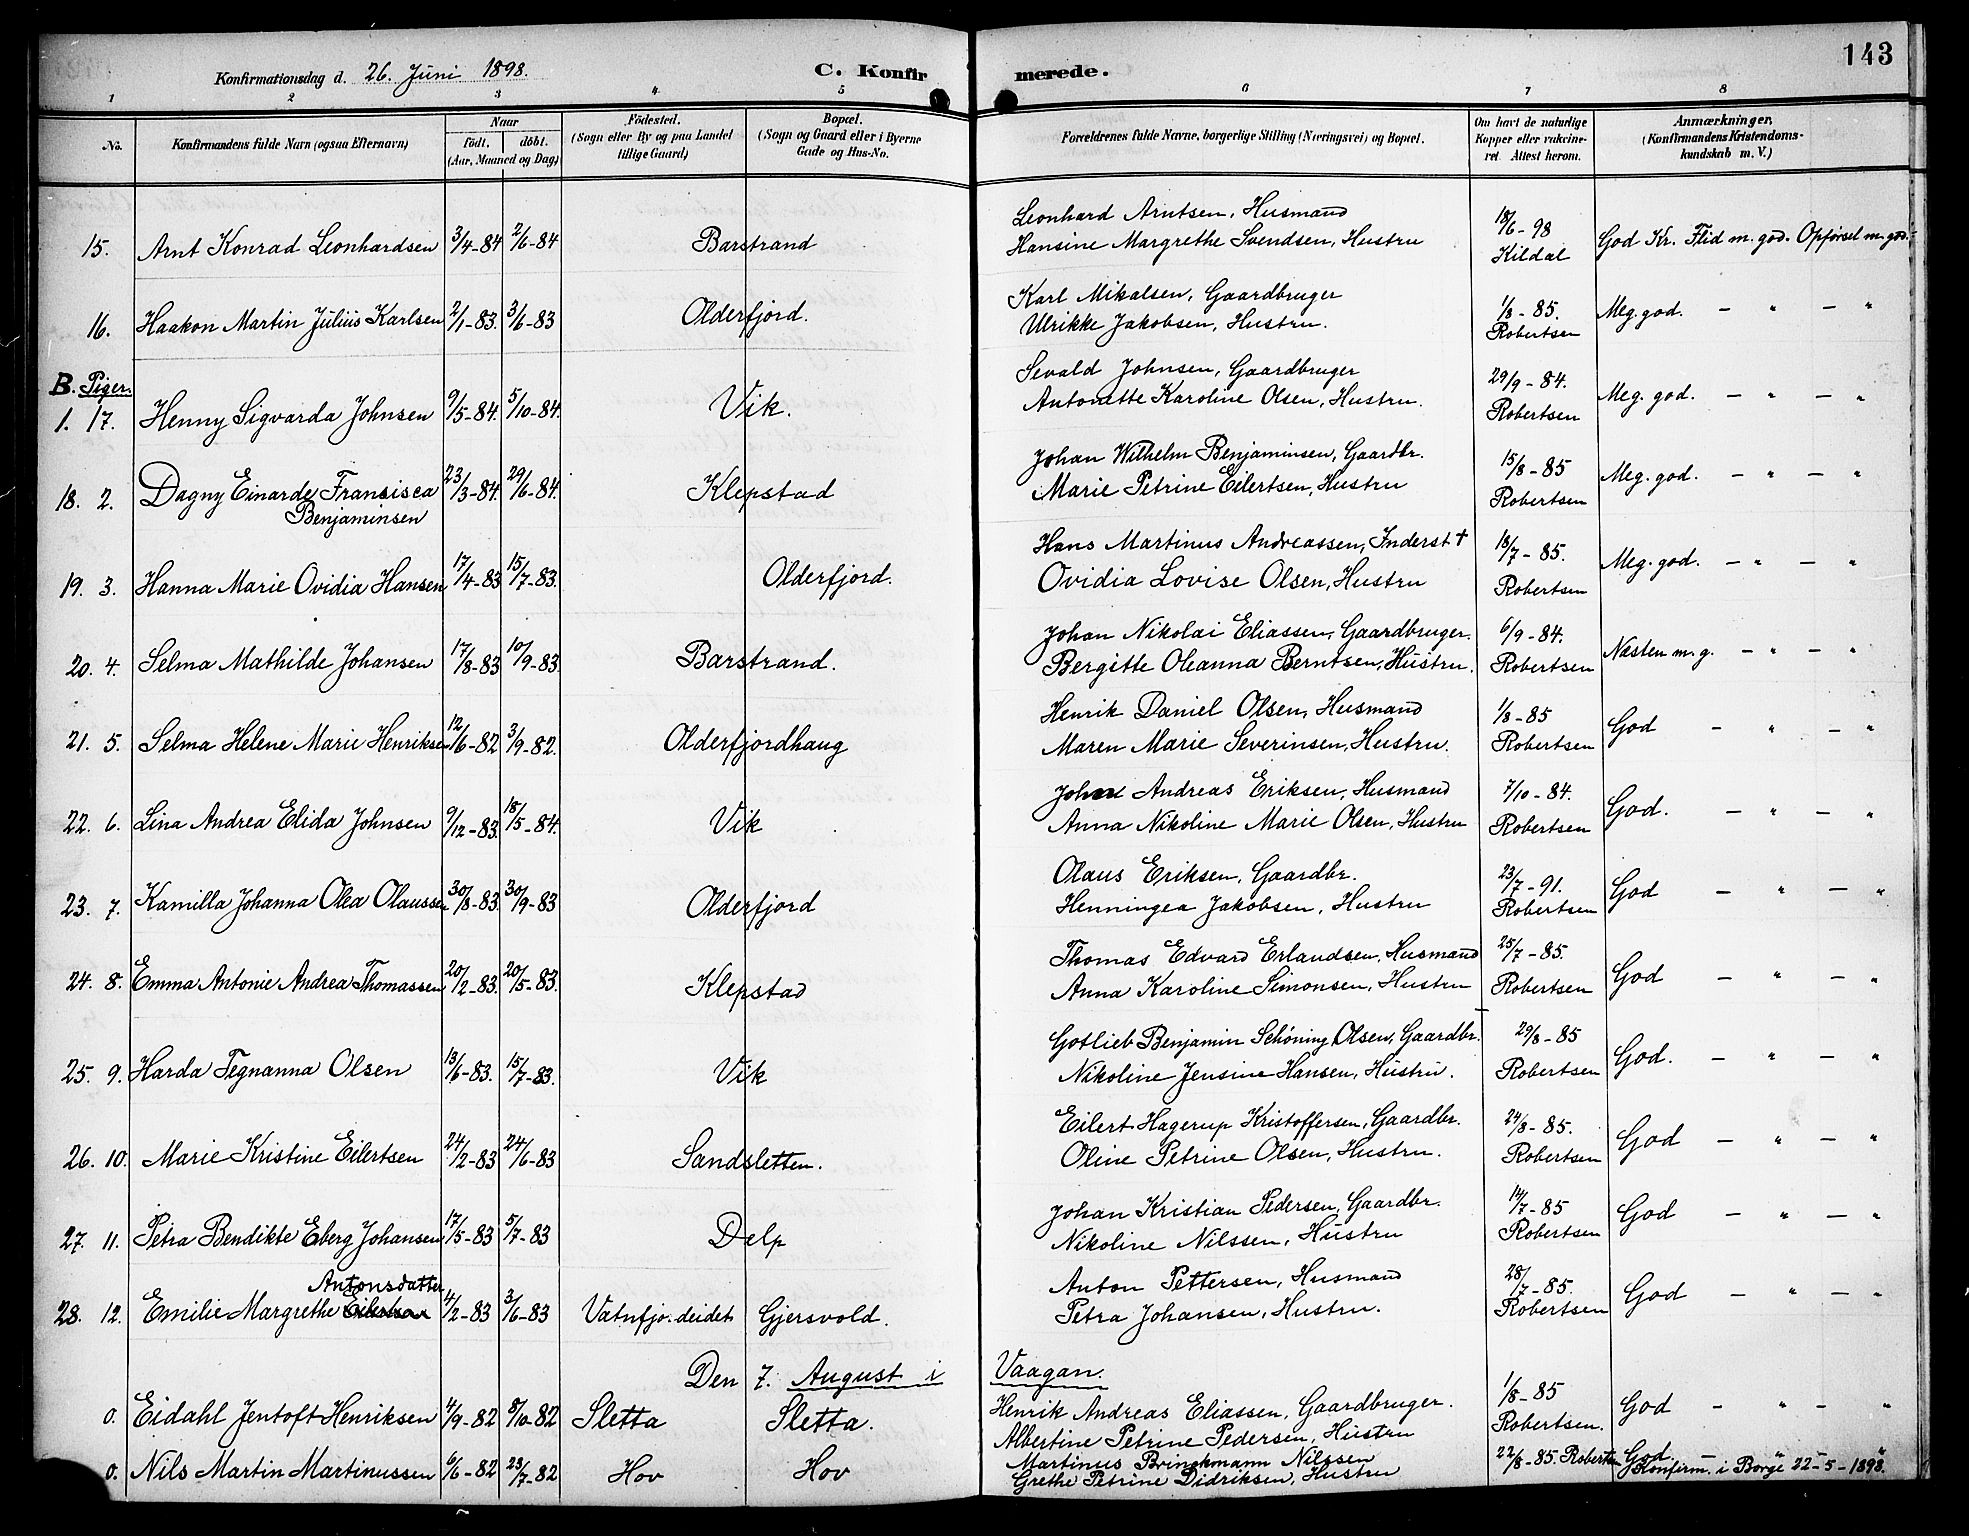 143
Konfirmationsdag d. 26. Juni 1898. C. Konfirmerede.
1 2 3 4 5 6 7 8
No. Konfirmandens fulde Navn (ogsaa Efternavn) Naar født, døbt. (Aar, Maaned og Dag) Fødested. (Sogn eller By og paa Landet tillige Gaard) Bopæl. (Sogn og Gaard eller i Byerne Gade og Hus-No. Forældrenes fulde Navne, borgerlige Stilling (Næringsvei) og Bopæl. Om havt de naturlige Kopper eller vakcineret Attest herom. Anmærkninger, (Konfirmandens Kristendomskundskab m. V.)
15. Arnt Konrad Leonhardsen 3/4-84 2/6-84 Barstrand Leonhard Arntsen, Husmand 18/6-98
Hansine Margrethe Svendsen, Hustru Kildal God Kr. Flid m. god. Opførsel m. god.
16. Haakon Martin Julius Karlsen 2/1-83. 3/6-83 Olderfjord. Karl Mikalsen, Gaardbruger 1/8-85.
Ulrikke Jakobsen, Hustru. Robertsen Meg. god. — " — "
B. Piger.
1. 17. Henny Sigvarda Johnsen 9/5-84. 5/10-84. Vik. Sevald Johnsen, Gaardbruger 29/9-84.
Antonette Karoline Olsen, Hustru. Robertsen Meg. god. — " — "
18. 2. Dagny Einarde Fransisca 23/3-84. 29/6-84. Klepstad Johan Wilhelm Benjaminsen, Gaardbr. 15/8-85
Benjaminsen Marie Petrine Eilertsen, Hustru Robertsen Meg. god. — " — "
19. 3. Hanna Marie Ovidia Hansen 17/4-83 15/7-83. Olderfjord. Hans Martinus Andreassen, Inderst † 18/7-85.
Ovidia Lovise Olsen, Hustru Robertsen Meg. god. — " — "
20. 4. Selma Mathilde Johansen 17/8-83 10/9-83. Barstrand. Johan Nikolai Eliassen, Gaardbruger. 6/9-84.
Bergitte Oleanna Berntsen, Hustru. Robertsen Næsten m. g. — " — "
21. 5. Selma Helene Marie Henriksen 12/6-82 3/9-82. Olderfjordhaug Henrik Daniel Olsen, Husmand 1/8-85
Maren Marie Severinsen, Hustru. Robertsen God — " — "
22. 6. Lina Andrea Elida Johnsen 9/12-83. 18/5-84. Vik John Andreas Eriksen, Husmand 7/10-84.
Anna Nikoline Marie Olsen, Hustru Robertsen God. — " — "
23. 7. Kamilla Johanna Olea Olaussen 30/8-83. 30/9-83 Olderfjord Olaus Eriksen, Gaardbr. 23/7-91.
Henningea Jakobsen, Hustru Robertsen God — " — "
24. 8. Emma Antonie Andrea Thomassen 20/2-83. 20/5-83. Klepstad Thomas Edvard Erlandsen, Husmand 25/7-85.
Anna Karoline Simonsen, Hustru Robertsen God — " — "
25. 9. Harda Tegnanna Olsen 13/6-83. 15/7-83. Vik Gotlieb Benjamin Schöning Olsen, Gaardbr. 29/8-85
Nikoline Jensine Hansen, Hustru. Robertsen God. — " — "
26. 10. Marie Kristine Eilertsen 24/2-83 24/6-83 Sandsletten. Eilert Hagerup Kristoffersen, Gaardbr. 24/8-85.
Oline Petrine Olsen, Hustru. Robertsen God — " — "
27. 11. Petra Bendikte Eberg Johansen 17/5-83 5/7-83 Delp Johan Kristian Pedersen, Gaardbr. 14/7-85
Nikoline Nilssen, Hustru Robertsen God — " — "
Antonsdatter
28. 12. Emilie Margrethe 4/2-83 3/6-83 Vatnfjo. deidet Gjersvold. Anton Pettersen, Husmand 28/7-85.
Petra Johansen, Hustru. Robertsen God — " — "
Den 7. August i Vaagan.
0. Eidahl Jentoft Henriksen 4/9-82 8/10-82 Sletta Sletta. Henrik Andreas Eliassen, Gaardbruger. 1/8-85
Albertine Petrine Pedersen, Hustru Robertsen. God — " — "
0. Nils Martin Martinussen 6/6-82 23/7-82 Hov Hov Martinus Brinckmann Nilssen 22/8-85. Robertsen God — " — "
Grethe Petrine Didriksen, Hustru Konfirm. i Borge 22-5-1898.